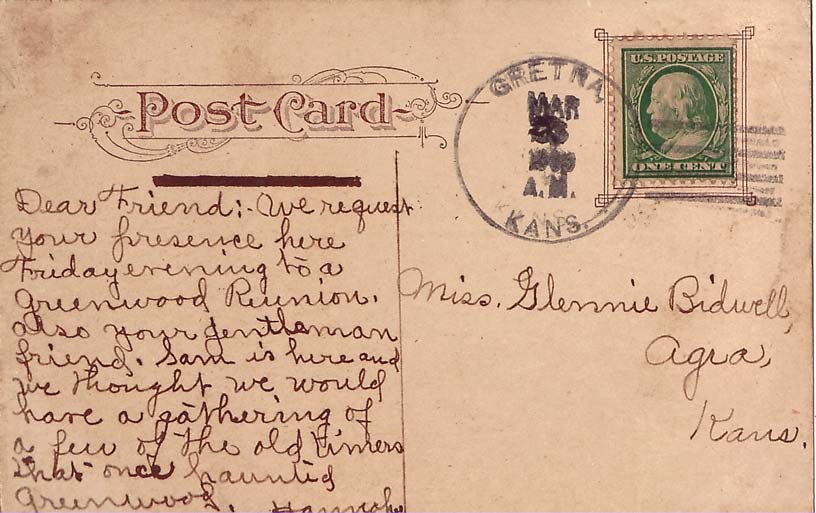 Post Card
GRETNA,
MAR
1909
A.M.
KANS.
U.S. POSTAGE
ONE CENT
Dear Friend:- We request
your presence here
Friday evening to a
Greenwood Reunion.
also your gentleman
friend. Sam is here and
we thought we would
have a gathering of
a few of the old timers
that once haunted
Greenwood. Hannah
Miss. Glennie Bidwell,
Agra,
Kans.